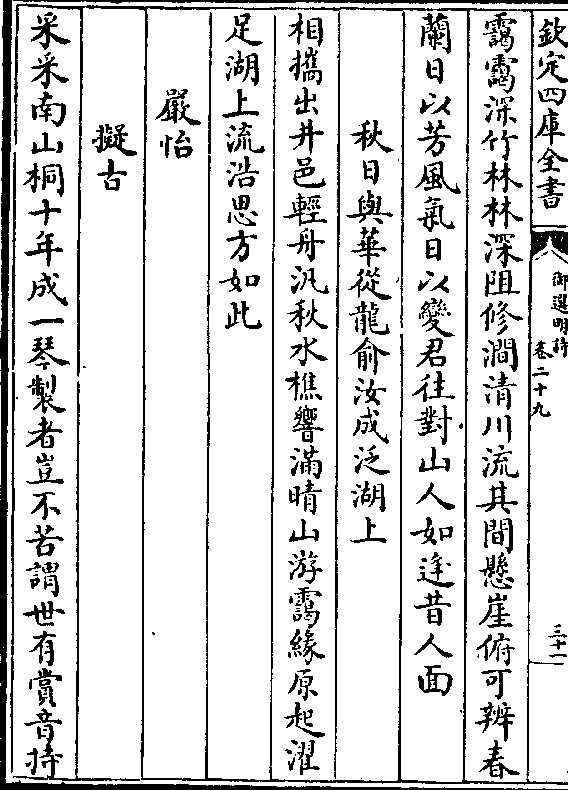 欽定四庫全書
御選明詩
卷二十九
三十一
靄靄深竹林林深阻修澗清川流其間懸崖俯可辨春
蘭日以芳風氣日以變君往對山人如逢昔人面
秋日與華從龍俞汝成泛湖上
相攜出井邑輕舟汎秋水樵響滿晴山游靄緣原起濯
足湖上流浩思方如此
嚴怡
擬古
采采南山桐十年成一琴製者豈不苦謂世有賞音持